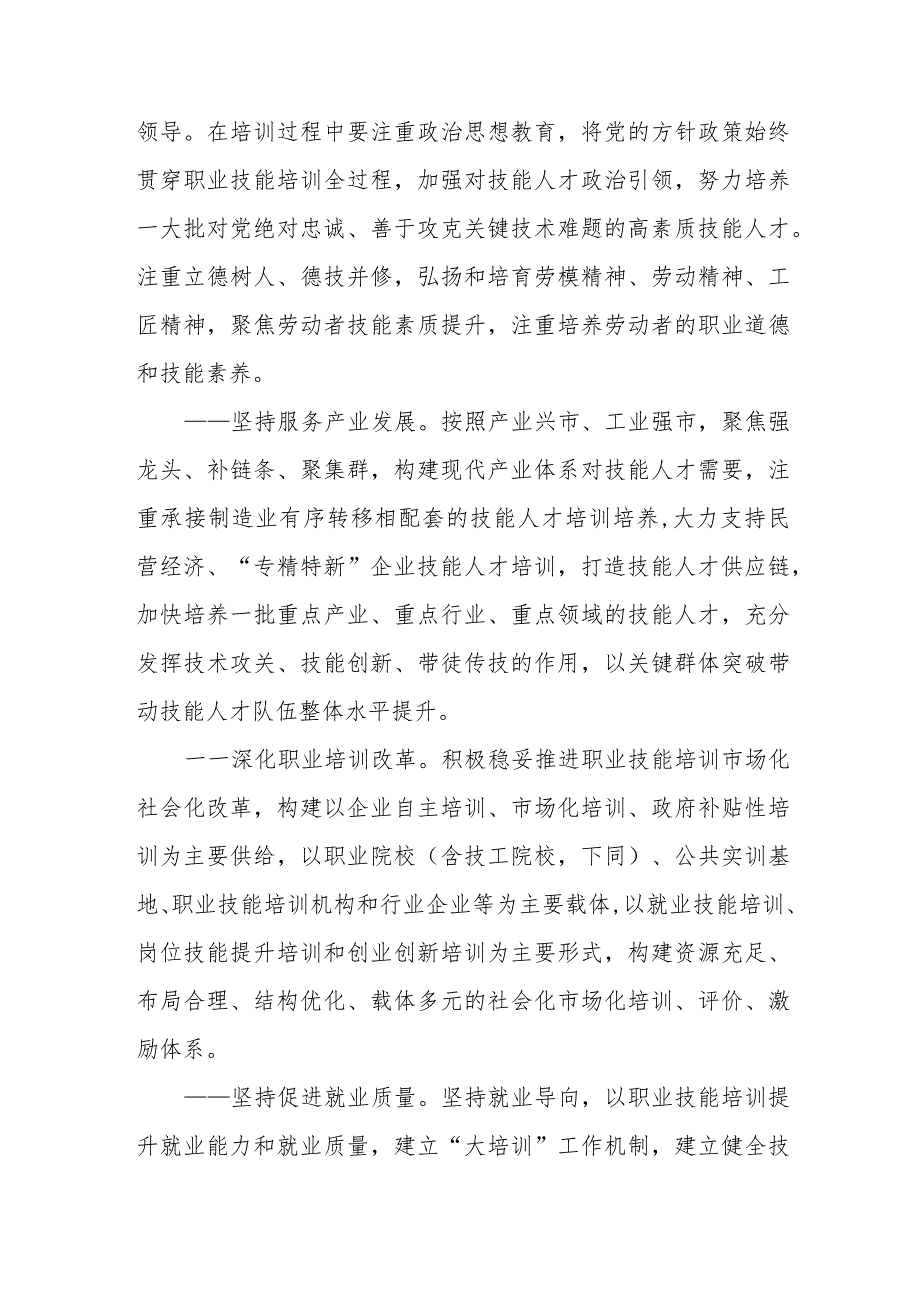 领导。在培训过程中要注重政治思想教育，将党的方针政策始终
贯穿职业技能培训全过程，加强对技能人才政治引领，努力培养
一大批对党绝对忠诚、善于攻克关键技术难题的高素质技能人才。
注重立德树人、德技并修，弘扬和培育劳模精神、劳动精神、工
匠精神，聚焦劳动者技能素质提升，注重培养劳动者的职业道德
和技能素养。
——坚持服务产业发展。按照产业兴市、工业强市，聚焦强
龙头、补链条、聚集群，构建现代产业体系对技能人才需要，注
重承接制造业有序转移相配套的技能人才培训培养,大力支持民
营经济、“专精特新”企业技能人才培训，打造技能人才供应链，
加快培养一批重点产业、重点行业、重点领域的技能人才，充分
发挥技术攻关、技能创新、带徒传技的作用，以关键群体突破带
动技能人才队伍整体水平提升。
一一深化职业培训改革。积极稳妥推进职业技能培训市场化
社会化改革，构建以企业自主培训、市场化培训、政府补贴性培
训为主要供给，以职业院校（含技工院校，下同）、公共实训基
地、职业技能培训机构和行业企业等为主要载体,以就业技能培训、
岗位技能提升培训和创业创新培训为主要形式，构建资源充足、
布局合理、结构优化、载体多元的社会化市场化培训、评价、激
励体系。
——坚持促进就业质量。坚持就业导向，以职业技能培训提
升就业能力和就业质量，建立“大培训”工作机制，建立健全技